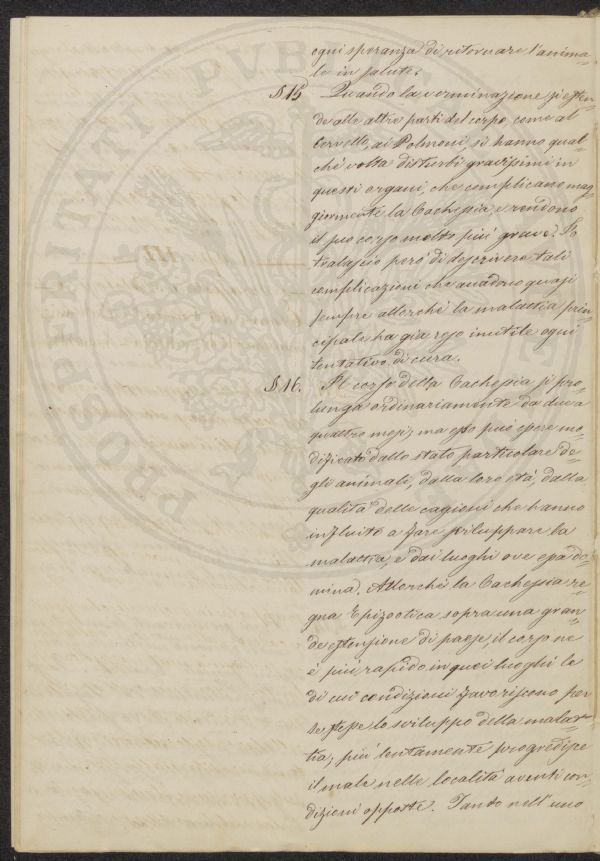 ogni speranza di ritornare l'anima=
le in salute.
§ 15 Quando la verminazione si esten=
de alle altre parti del corpo, come al
Cervello, ai Polmoni, si hanno qual=
ché volta disturbi gravissimi in
questi organi, che complicano mag=
giormente la Cachessia, e rendono
il suo corso molto più grave. Io
tralascio però di descrivere tali
complicazioni che accadono quasi
sempre allorché la malattia prin=
cipale ha già reso inutile ogni
tentativo di cura.
§ 16. Il corso della Cachessia si pro=
lunga ordinariamente da due a
quattro mesi; ma esso può essere mo=
dificato dallo stato particolare de=
gli animali, dalla loro età, dalla
qualità delle cagioni che hanno
influito a fare sviluppare la
malattia, e dai luoghi ove essa do=
mina. Allorché la Cachessia re=
gna Epizootica sopra una gran=
de estensione di paese, il corso ne
è più rapido in quei luoghi le
di cui condizioni favoriscono per
se stesse lo sviluppo della malat=
tia; più lentamente progredisce
il male nelle località aventi con=
dizioni opposte. Tanto nell'uno
PROSPERITATI PUBLICAE